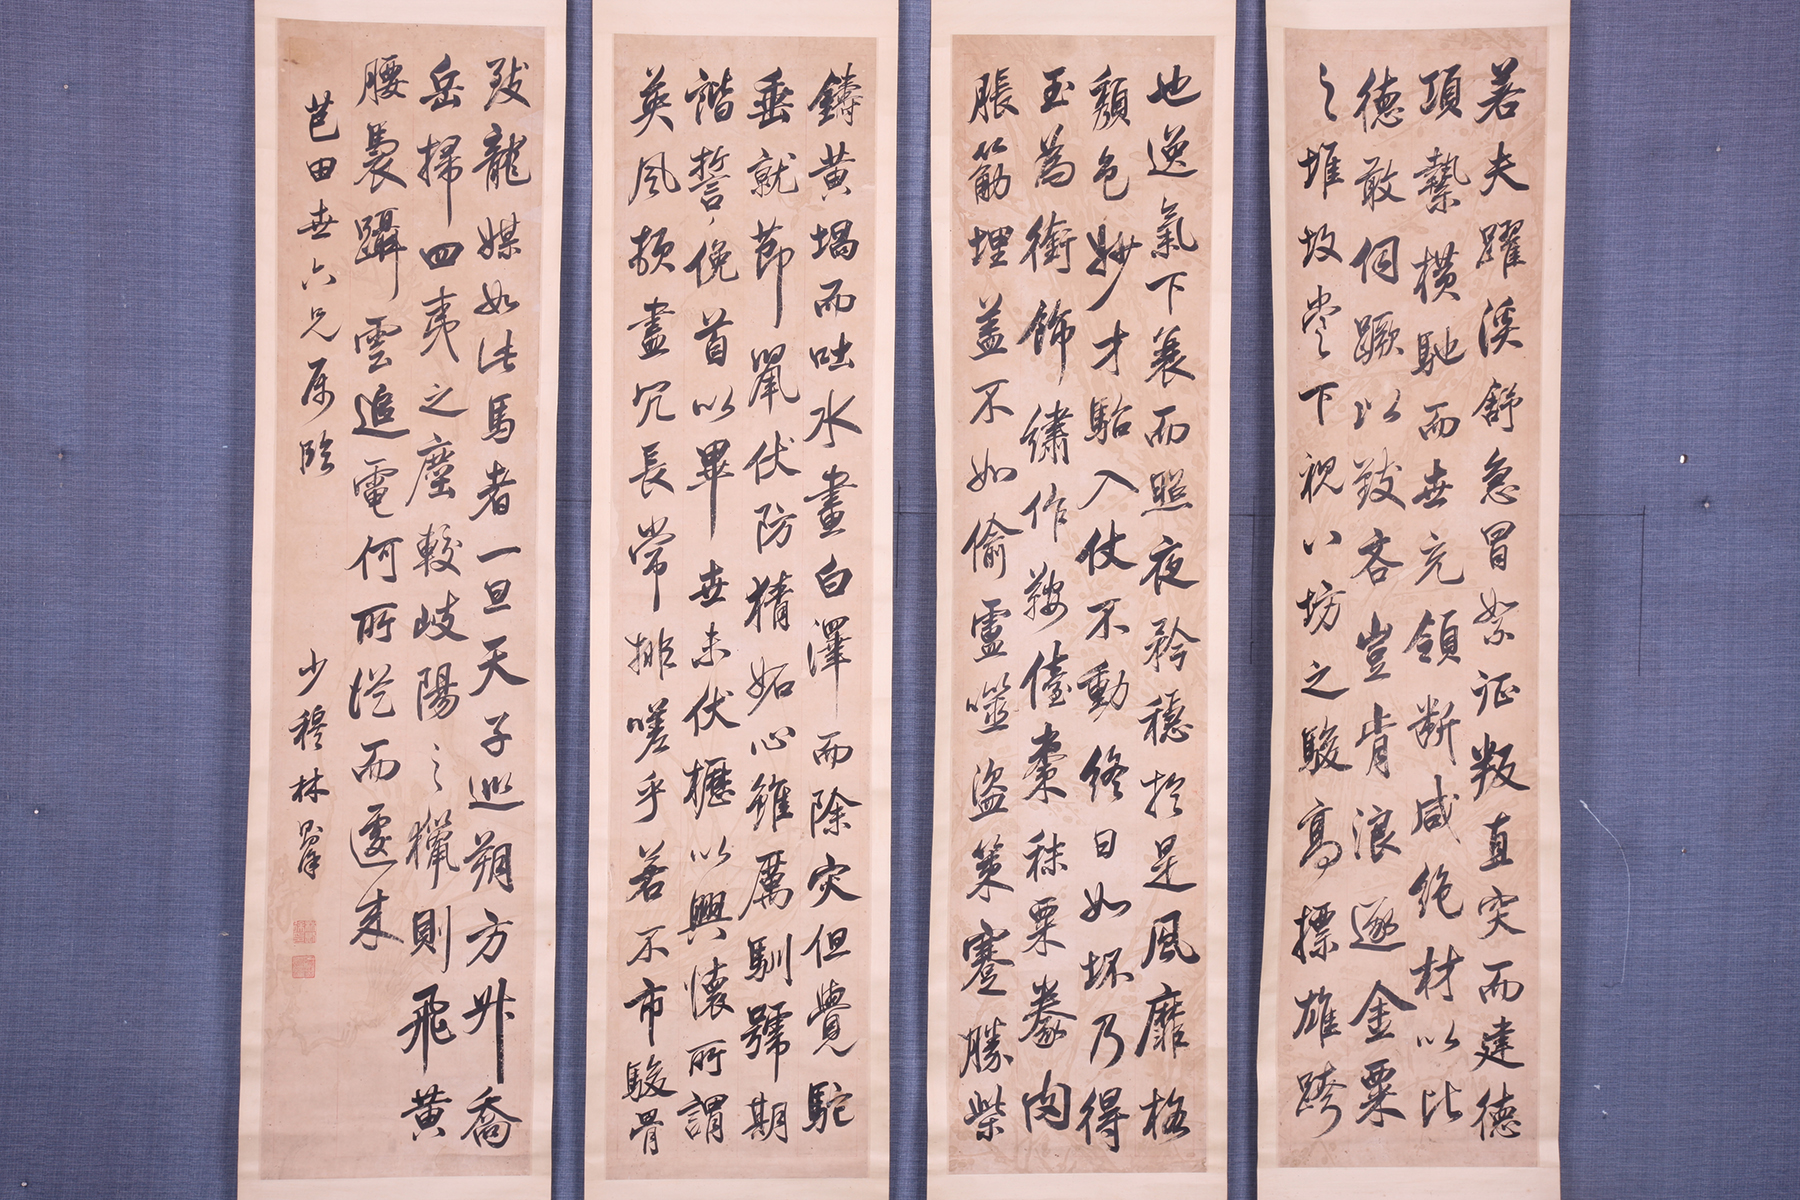 若夫躍溪舒急冒絮征叛直突而建德
項縶橫馳而世充領斷咸絶材以比
德敢伺蹶以致吝豈肯浪逐金粟
之堆故當下視八坊之駿高摽雄跨
也逸氣下蓑而照夜矜穩於是風靡格
頹色妙才駘入仗不動終日如坯乃得
玉為銜飾繡作鞍儓棗秣粟豢肉
脹筋埋蓋不如偷盧噬盜策蹇勝柴
鑄黃堝而吐水畫白澤而除灾但覺駝
垂就節鼠伏防猜妬心雖厲馴號期
諧誓俛首以畢世未伏櫪以興懷所謂
英風頓盡冗長常排嗟乎若不市駿骨
致龍媒如此馬者一旦天子巡朔方升喬
岳掃四夷之塵較岐陽之獵則飛黃
腰褭躡雲追電何所從而遽來
芑田世六兄属臨
少穆林則徐